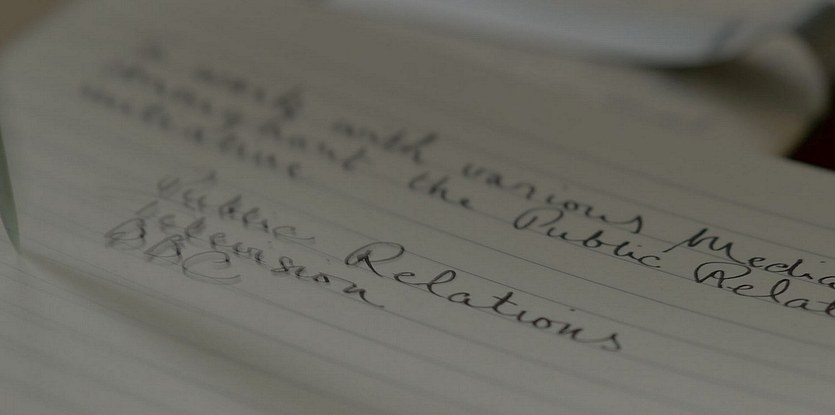 to work with various Media
throughout the Public Relat
initiative
Public Relations
television
BBC